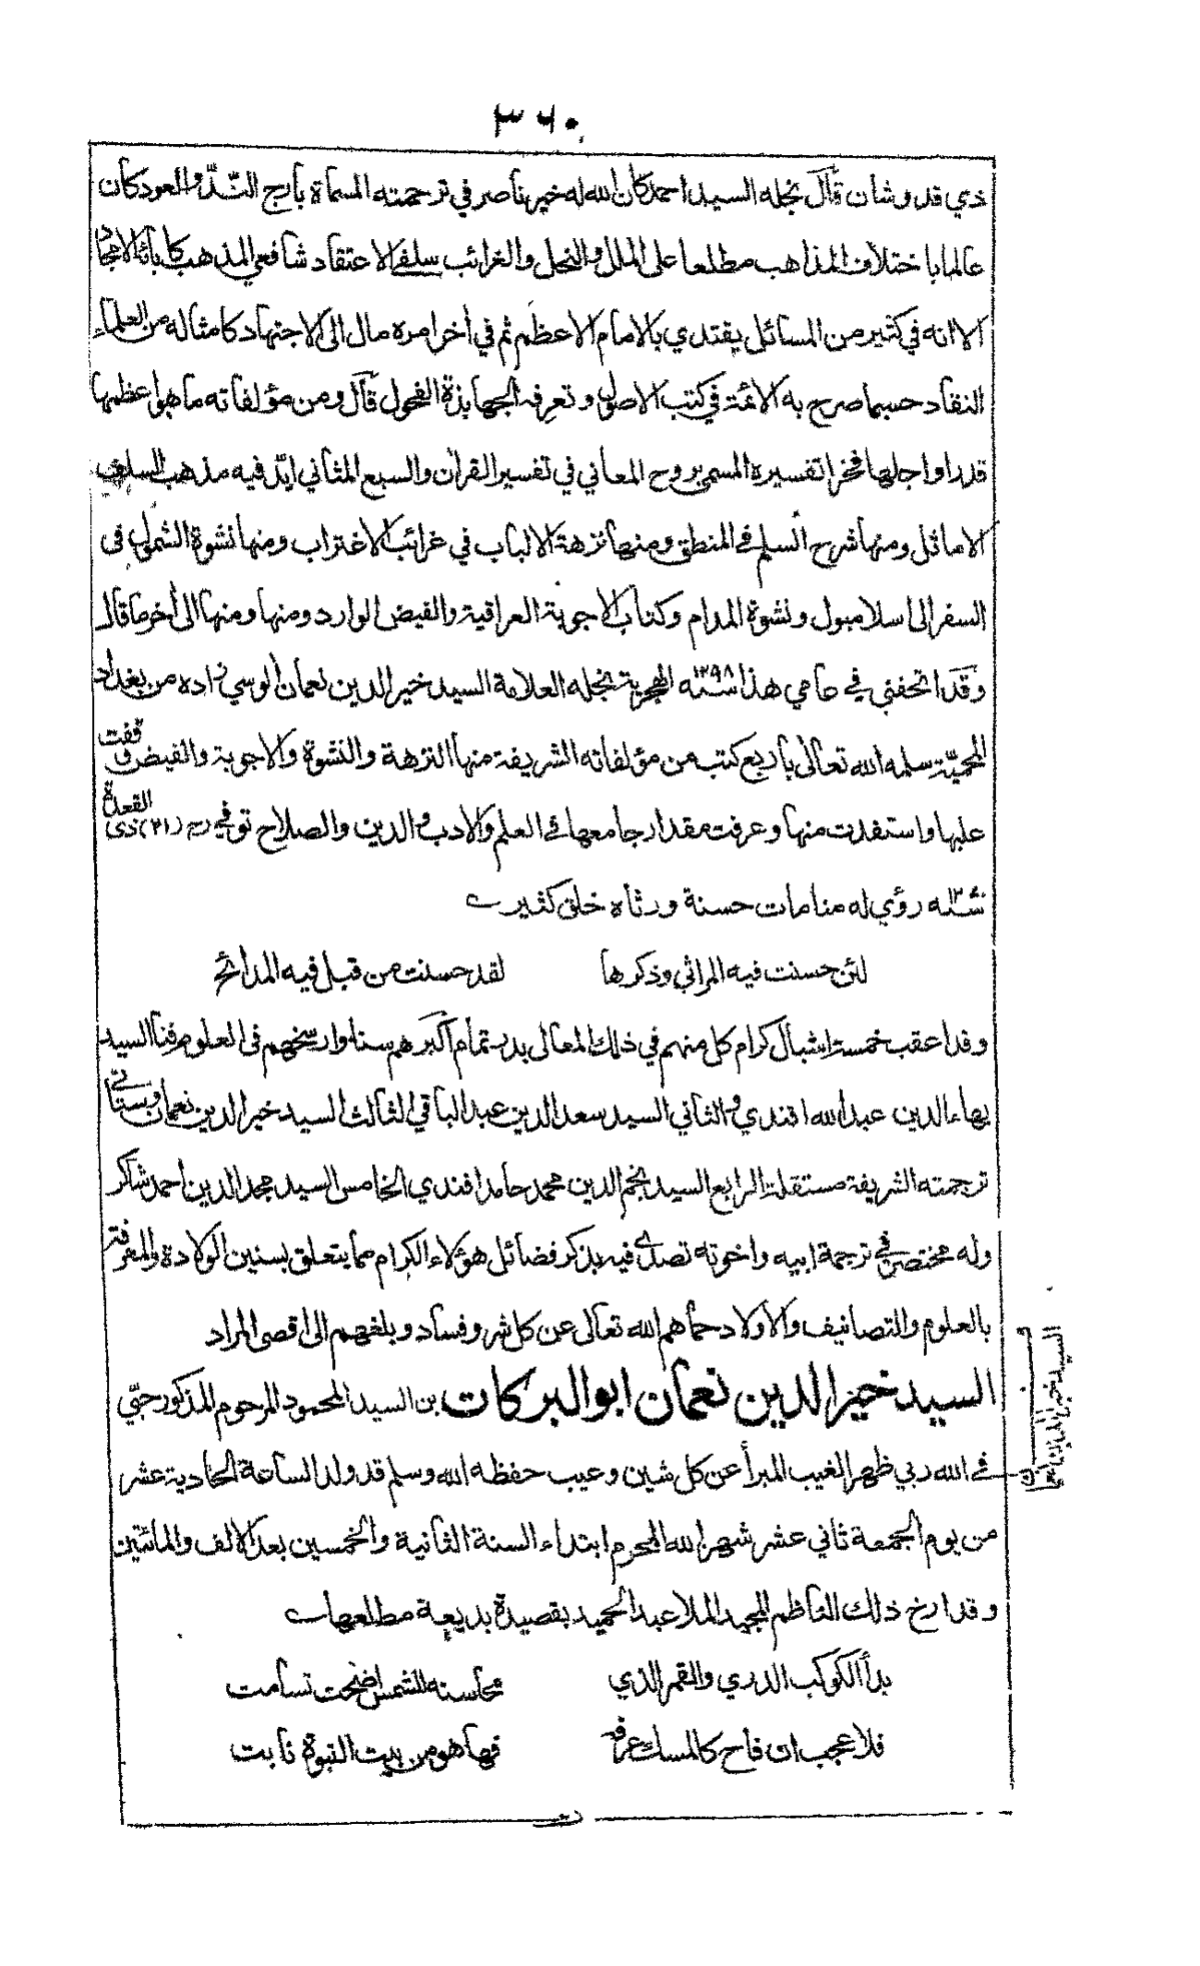 ٣٦٠
ذي قدر وشان قال نجله السيد احمد كان الله له خير ناصر في ترجمته المسماة بأرج النّدّ والعود كان
عالما باختلاف المذاهب مطلعا على الملل والنحل والغرائب سلفي الاعتقاد شافعي المذهب كآبائه الامجاد
الا انه في كثير من المسائل يقتدي بالامام الاعظم ثم في أخر امره مال الى الاجتهاد كامثاله من العلماء
النقاد حسبما صرح به الائمة في كتب الاصول وتعرفه الجهابذة الفحول قال ومن مؤلفاته ما هو اعظمها
قدرا واجلها فخرا تفسيره المسمى بروح المعاني في تفسير القرأن والسبع المثاني ايّد فيه مذهب السلف
الاماثل ومنها شرح السلم في المنطق ومنها نزهة الالباب في غرائب الاغتراب ومنها نشوة الشمول في
السفر الى اسلامبول ونشوة المدام وكتاب الاجوبة العراقية والفيض الوارد ومنها ومنها الى أخر ما قال
وقد اتحفني في عامي هذا سنة ١٢٩٨ الهجرية نجله العلامة السيد خير الدين نعمان ألوسي زاده من بغداد
المحميّة سلمه الله تعالى بأربع كتب من مؤلفاته الشريفة منها النزهة والنشوة والاجوبة والفيض فوقفت
عليها واستفدت منها وعرفت مقدار جامعها في العلم والادب والدين والصلاح توفي رح (٢١) ذى القعدة
سنة ١٢٧٠ رؤي له منامات حسنة ورثاه خلق كثير
لئن حسنت فيه المراثي وذكرها لقد حسنت من قبل فيه المدائح
وقد اعقب خمسة اشبال كرام كل منهم في ذلك المعالى بدر تمام أكبرهم سنا وارسخهم فى العلوم فنا السيد
بهاء الدين عبد الله افندي والثاني السيد سعد الدين عبد الباقي الثالث السيد خير الدين نعمان وستأتي
ترجمته الشريفة مستقلة الرابع السيد نجم الدين محمد حامد افندي الخامس السيد مجد الدين احمد شاكر
وله مختصر في ترجمة ابيه واخوته تصدى فيه بذكر فضائل هؤلاء الكرام مما يتعلق بسنين الولادة والمعرفة
بالعلوم والتصانيف والاولاد حماهم الله تعالى عن كل شر وفساد وبلغهم الى اقصى المراد
السيد خير الدين نعمان ابو البركات بن السيد المحمود المرحوم المذكور حبّي
في الله ربي ظهر الغيب المبرأ عن كل شين وعيب حفظه الله وسلم قد ولد الساعة الحادية عشر
من يوم الجمعة ثاني عشر شهر الله المحرم ابتداء السنة الثانية والخمسين بعد الالف والمائتين
وقد ارخ ذلك الناظم المجيد الملا عبد الحميد بقصيدة بديعة مطلعها
بدأ الكوكب الدري والقمر الذي محاسنه للشمس اضحت تسامت
فلا عجب ان فاح كالمسك عرفه فها هو من بيت النبوة نابت